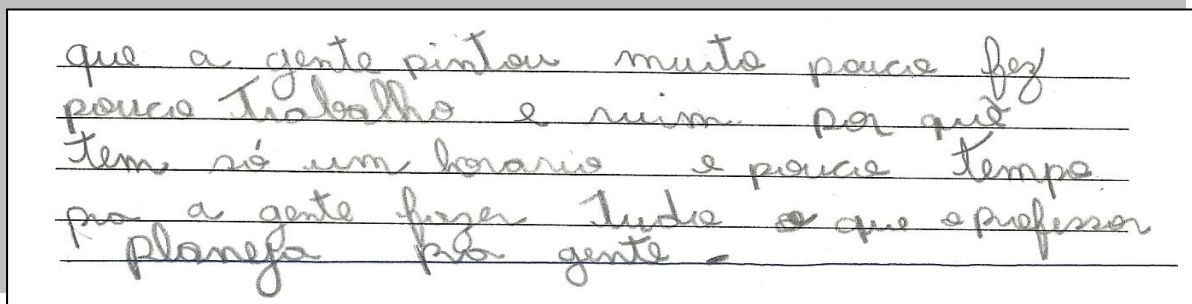 que a gente pintou muito pouco fez
pouco trabalho e ruim por quê
tem só um horario e pouco tempo
pra a gente fazer tudo o que o professor
planeja pra gente.